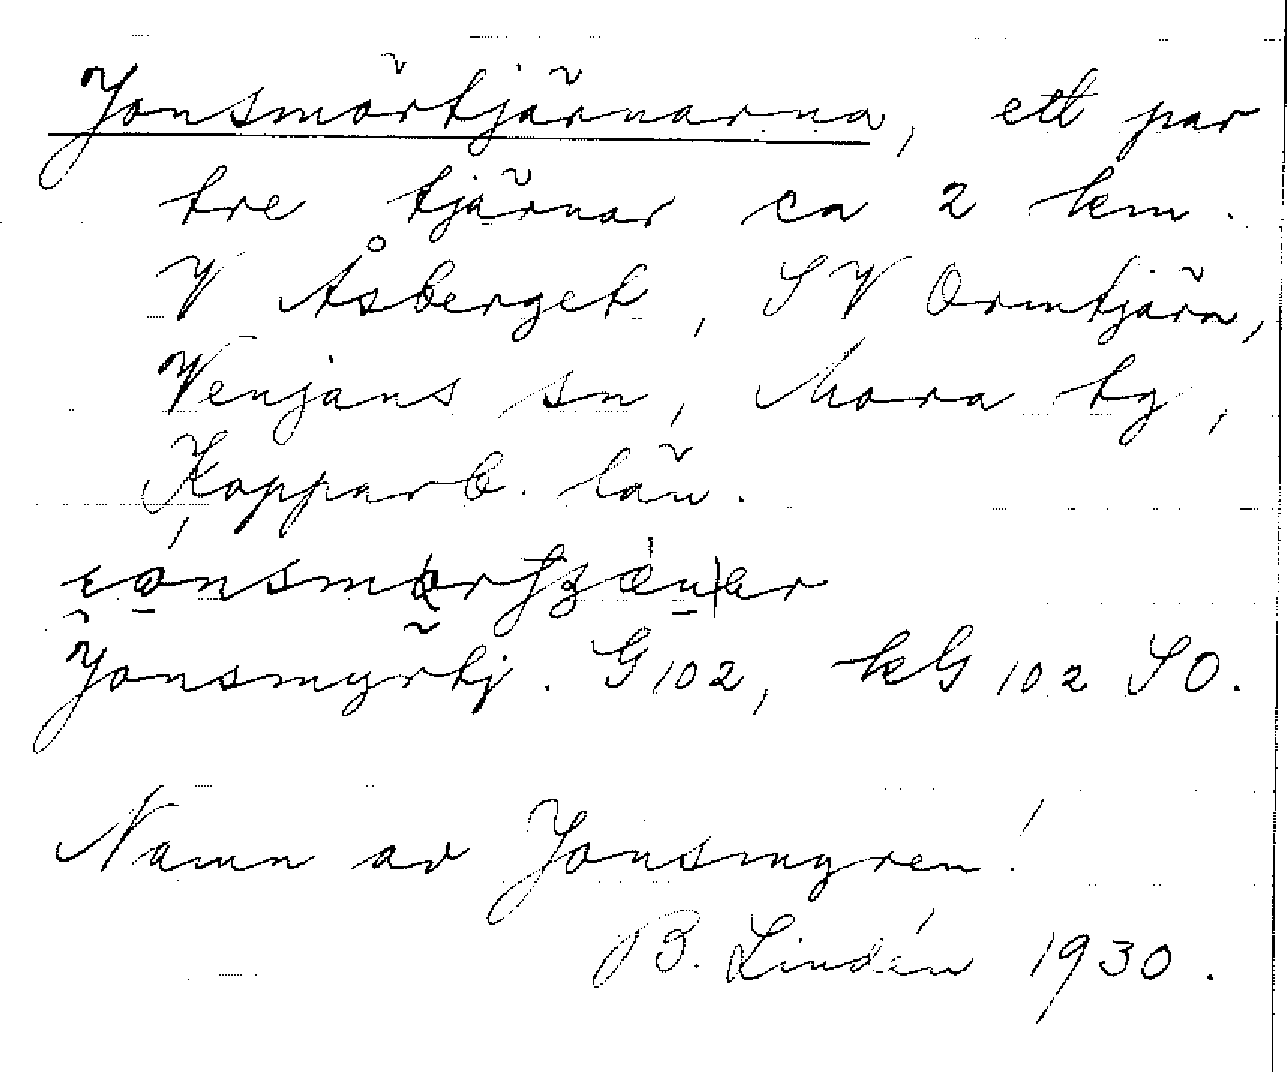 Jonsmörtjärnarna, ett par
tre tjärnar ca 2 km.
V Åsberget, SV Ormtjärn,
Venjans sn, Mora tg,
Kopparb. län.
Jonsmyrtj. G 102, kG 102 SO.
Namn av Jonsmyren!
B. Lindén 1930.